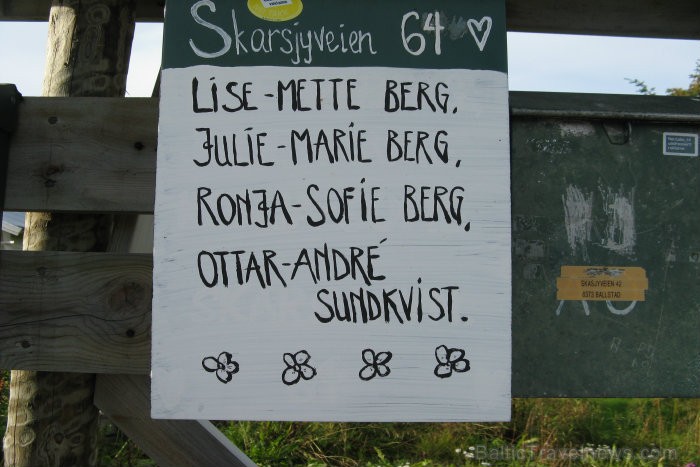 Skarsjyveien 64
LISE-METTE BERG,
JULIE-MARIE BERG,
RONJA-SOFIE BERG,
OTTAR-ANDRÉ
SUNDKVIST.
SKASJYVEIEN 42
8373 BALLSTAD
BalticTravelnews.com